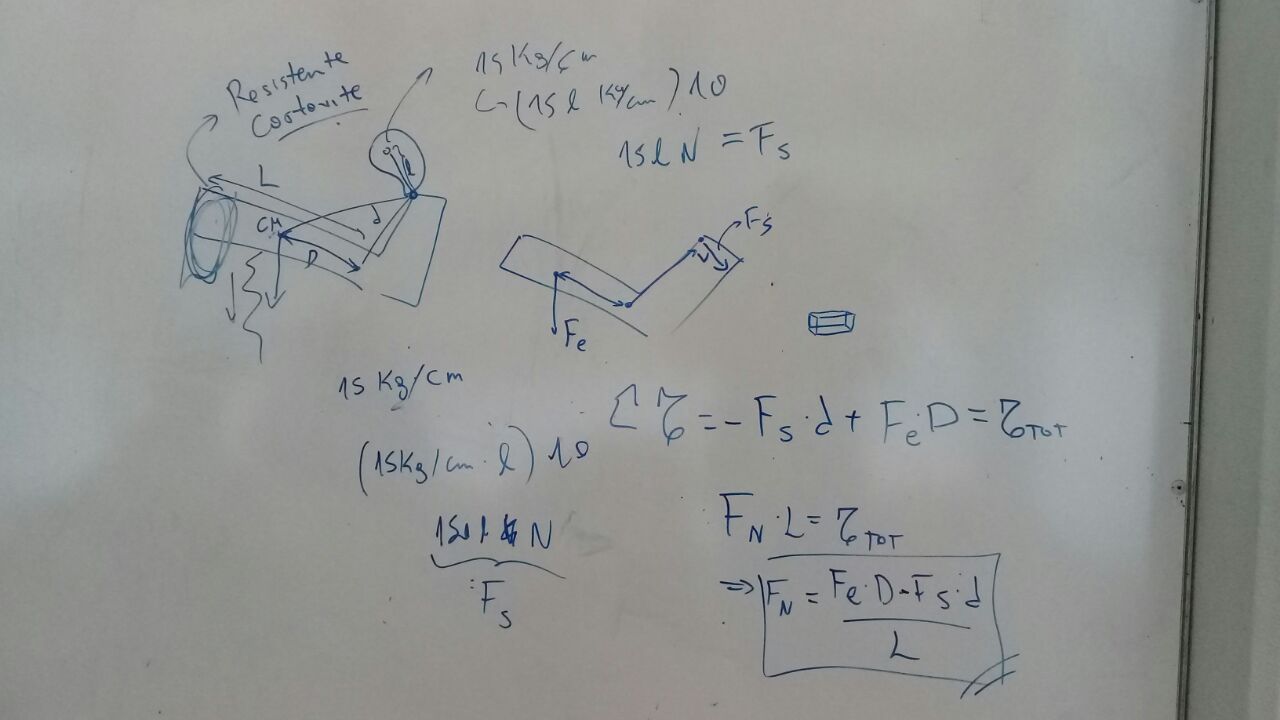 Resistente
cortovite
L
CM
D
d
l
15 Kg/cm
(15 l Kg/cm) 10
15 l N = Fs
Fs
Fe
15 Kg/cm
(15Kg/cm · l) 10
N
Fs
Σ τ = - Fs · d + Fe · D = τTOT
FN · L = τTOT
=> FN = Fe · D - Fs · d
L